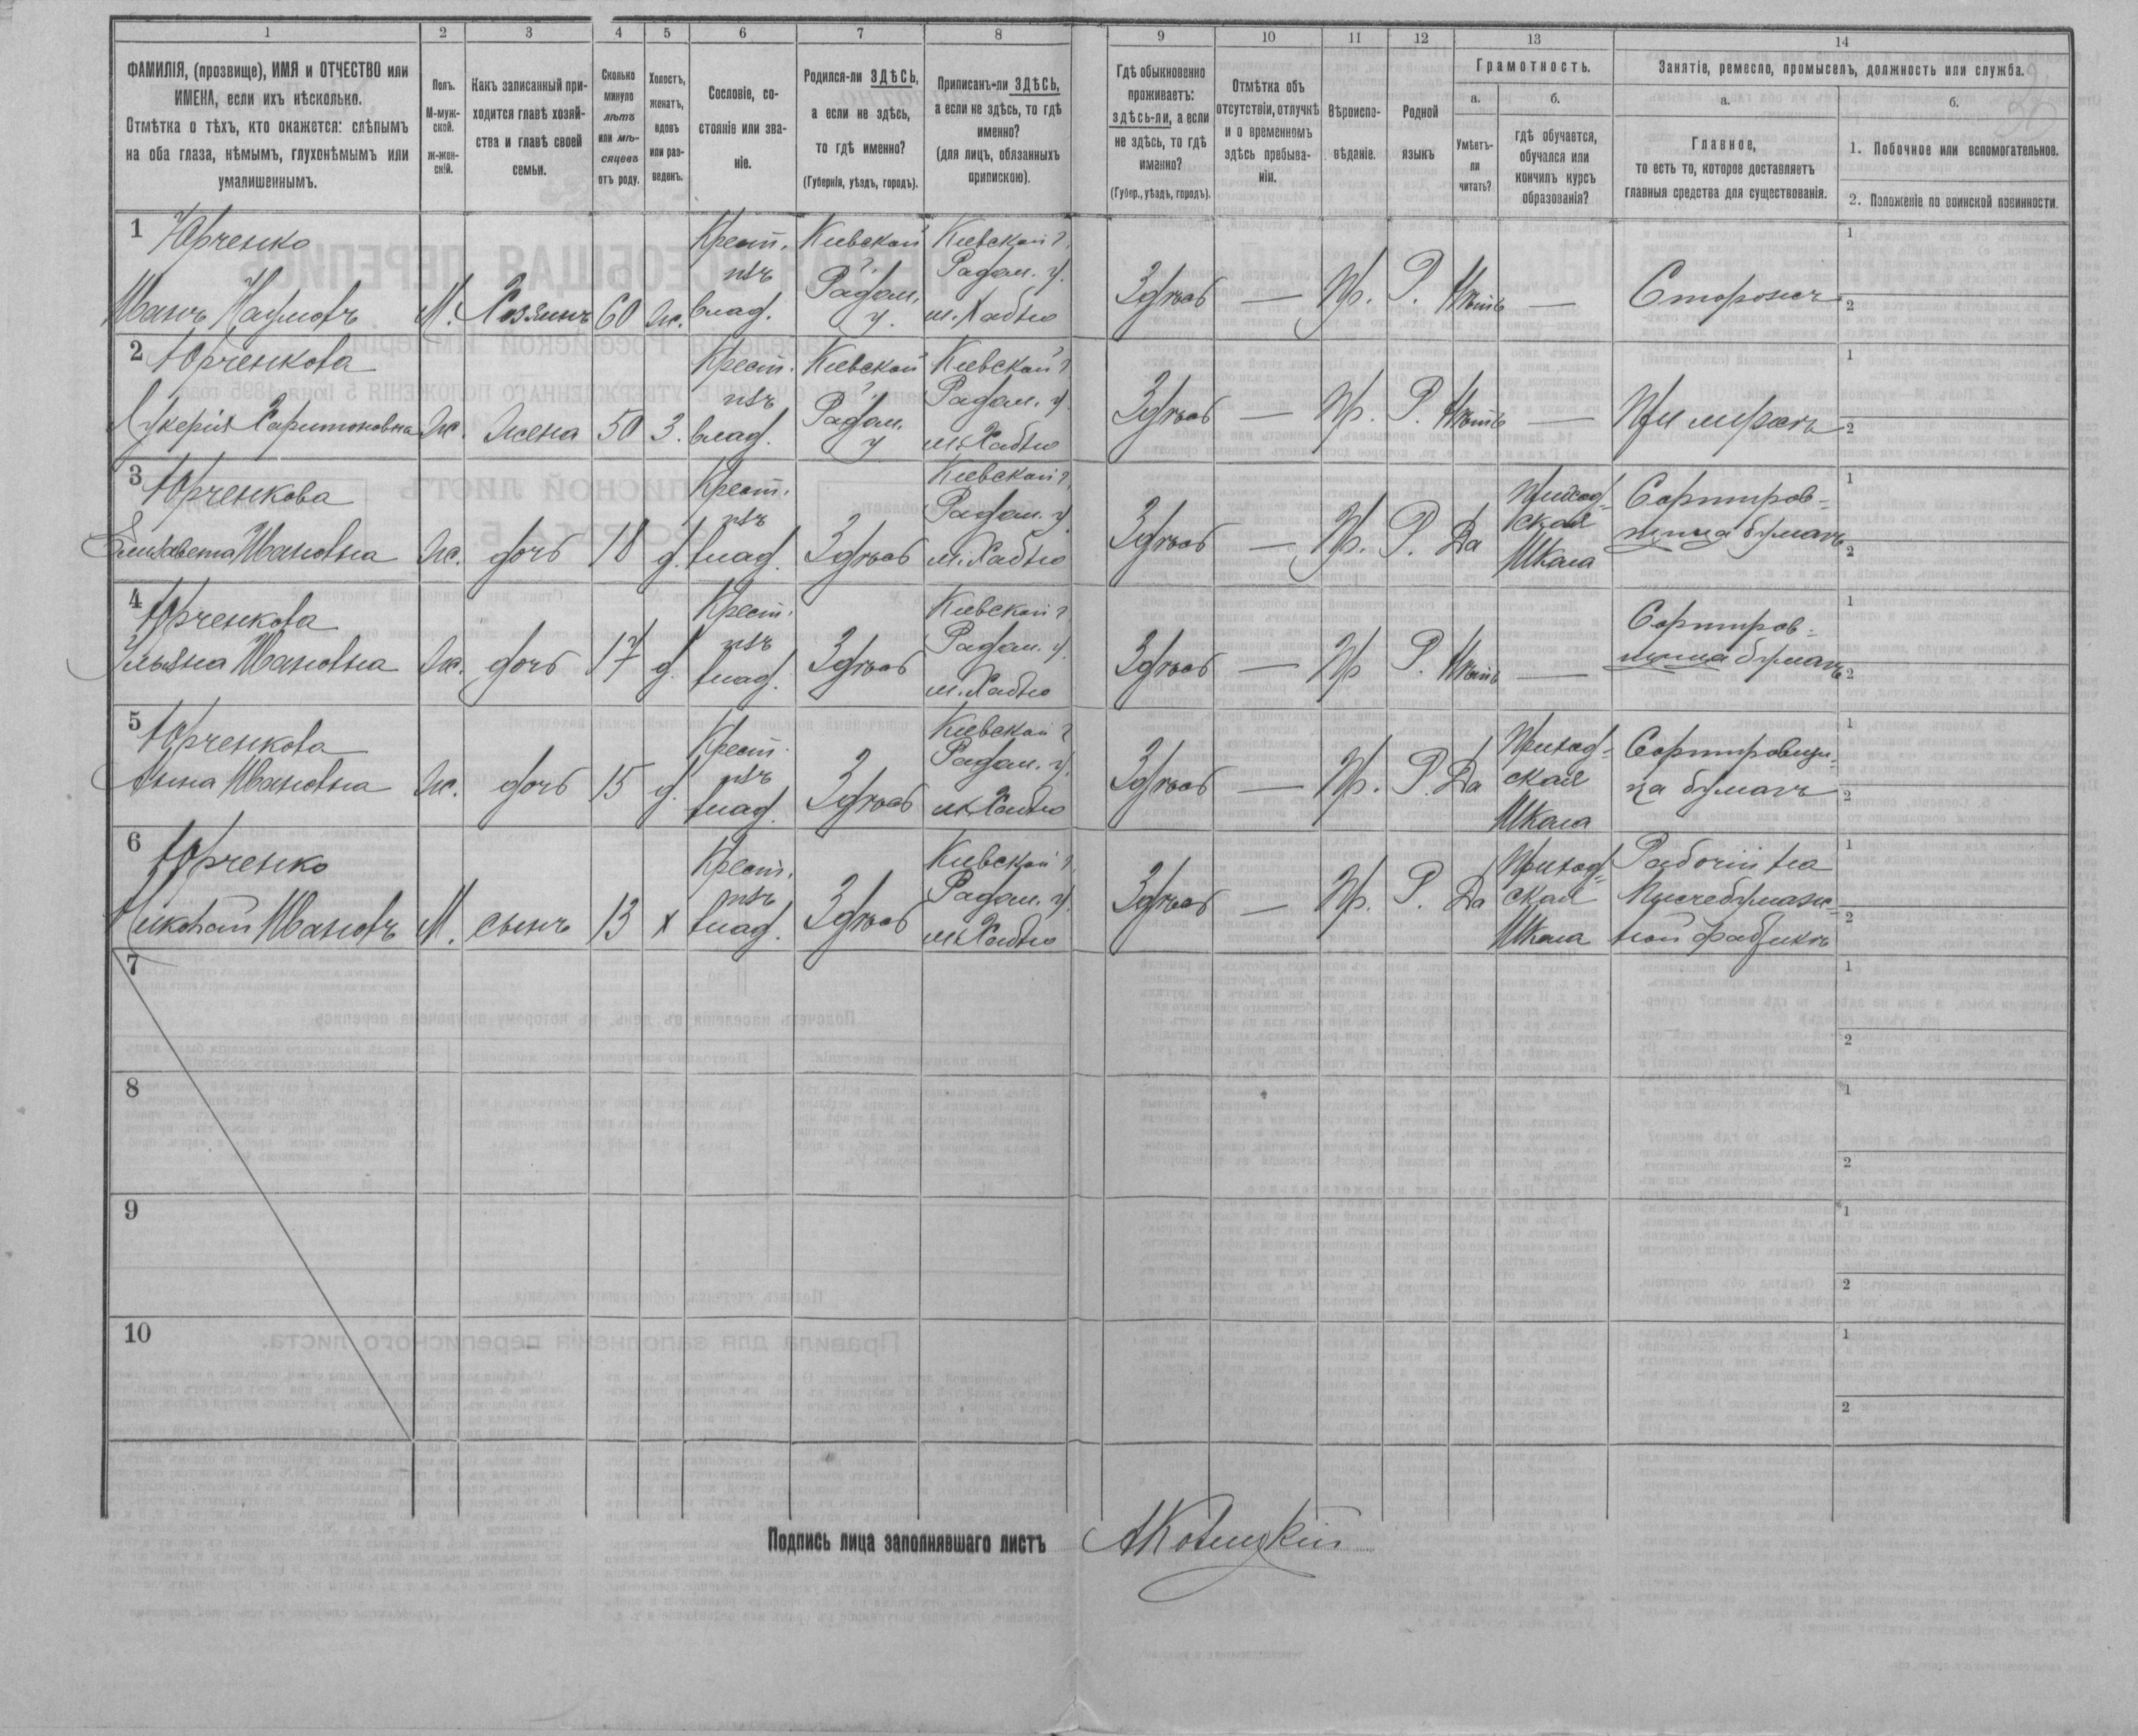 1 2 3 4 5 6 7 8 9 10 11 12 13 14
ФАМИЛІЯ, (прозвище), ИМЯ и ОТЧЕСТВО или
ИМЕНА, если ихъ нѣсколько.
Отмѣтка о тѣхъ, кто окажется: слѣпымъ
на оба глаза, нѣмымъ, глухонѣмымъ или
умалишеннымъ.
Полъ.
М-муж-
ской.
Ж-жен-
скій.
Какъ записанный при-
ходится главѣ хозяй-
ства и главѣ своей
семьи.
Сколько
минуло
лѣтъ
или мѣ-
сяцевъ
отъ роду.
Холостъ,
женатъ,
вдовъ
или раз-
веденъ.
Сословіе, со-
стояніе или зва-
ніе.
Родился-ли ЗДѢСЬ,
а если не здѣсь,
то гдѣ именно?
(Губернія, уѣздъ, городъ).
Приписанъ-ли ЗДѢСЬ,
а если не здѣсь, то гдѣ
именно?
(для лицъ, обязанныхъ
припискою).
Гдѣ обыкновенно
проживаетъ:
здѣсь-ли, а если
не здѣсь, то гдѣ
именно?
(Губер., уѣздъ, городъ).
Отмѣтка объ
отсутствіи, отлучкѣ
и о временномъ
здѣсь пребыва-
ніи.
Вѣроиспо-
вѣданіе.
Родной
языкъ
Грамотность.
а.
Умѣетъ-
ли
читать?
б.
гдѣ обучается,
обучался или
кончилъ курсъ
образованія?
Занятіе, ремесло, промыселъ, должность или служба.
а.
Главное,
то есть то, которое доставляетъ
главныя средства для существованія.
б.
1. Побочное или вспомогательное.
2. Положеніе по воинской повинности.
1 Юрченко
Иванъ Наумовъ
М.
Хозяинъ
60
ж.
Крест.
изъ
влад.
Кіевской
г.
Радом.
у.
Кіевской г.
Радом. у.
м. Хабно
Здѣсь
—
Пр.
Р.
Нѣтъ
—
Сторожъ
1
2
2 Юрченкова
Лукерія Харитоновна
Ж.
Жена
50
З.
Крест.
изъ
влад.
Кіевской
г.
Радом.
у
Кіевской г
Радом. у.
м. Хабно
Здѣсь
—
Пр.
Р.
Нѣтъ
—
При мужѣ
1
2
3 Юрченкова
Елизавета Ивановна
Ж.
дочь
18
д.
Крест.
изъ
влад.
Здѣсь
Кіевской г.
Радом. у.
м. Хабно
Здѣсь
—
Пр.
Р.
Да
Приход-
ская
Школа
Сортиров-
щица бумагъ
1
2
4 Юрченкова
Ульяна Ивановна
Ж.
дочь
17
д.
Крест.
изъ
влад.
Здѣсь
Кіевской г
Радом. у.
м. Хабно
Здѣсь
—
Пр
Р.
Нѣтъ
—
Сортиров-
щица бумагъ
1
2
5 Юрченкова
Анна Ивановна
Ж.
дочь
15
д.
Крест.
изъ
влад.
Здѣсь
Кіевской г
Радом. у.
м. Хабно
Здѣсь
—
Пр.
Р.
Да
Приход-
ская
Школа
Сортировщи-
ца бумагъ
1
2
6 Юрченко
Николай Ивановъ
М.
сынъ
13
х
Крест.
изъ
влад.
Здѣсь
Кіевской г.
Радом. у.
м. Хабно
Здѣсь
—
Пр.
Р.
Да
Приход-
ская
Школа
Рабочій на
Писчебумаж-
ной фабрикѣ
1
2
7
1
2
8
1
2
9
1
2
10
1
2
Подпись лица заполнявшаго листъ